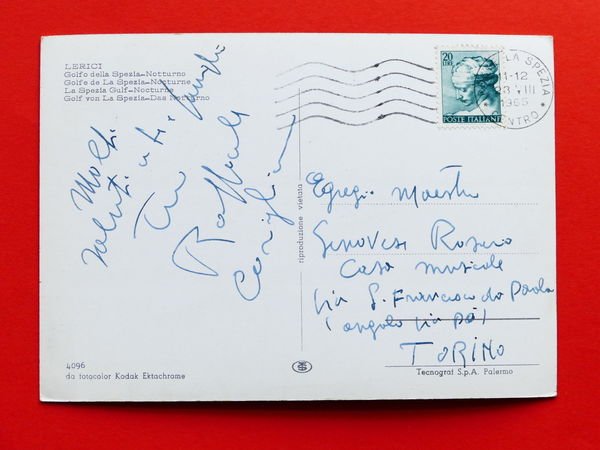 LERICI
Golfo della Spezia-Notturno
Golfe de La Spezia-Nocturne
La Spezia Gulf-Nocturne
Golf von La Spezia-Das Notturno
Molti
saluti a tutti
Raffaele
riproduzione vietata
20
LIRE
POSTE ITALIANE
LA SPEZIA
CENTRO
Egregi. Maestro
Genovesi Rosario
Casa musicale
Via S. Francesco da Paola
(angolo via Po)
TORINO
4096
da fotocolor Kodak Ektachrome
Tecnograf S.p.A. Palermo